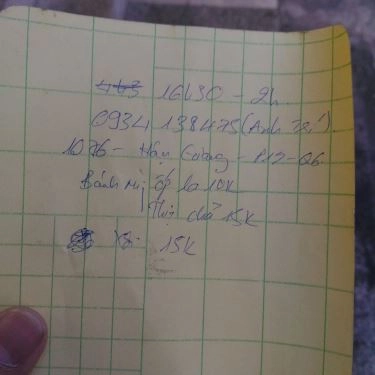 16h30 - 2h.
0934 138475 (Anh Trí).
1076 - Hậu Giang - P12 - Q6
Bánh mì ốp la 10K
Thịt chả 15K
15K